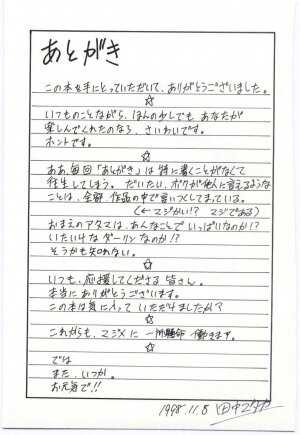 あとがき
この本を手にとっていただいて、ありがとうございました。
☆
いつものことながら、ほんの少しでも あなたが
楽しんでくれたのなら、さいわいです。
ホントです。
☆
ああ、毎回「あとがき」は 特に書くことがなくて
往生してしまう。だいたい、ボクが他人に言えるような
ことは、全部、作品の中で言いつくしてしまっている。
(←マジかい!? マジである)
おまえのアタマは、あんなことで いっぱいなのか!?
いたいけなダーリンなのか!?
そうかも知れない。
☆
いつも、応援してくださる 皆さん。
本当にありがとうございます。
この本は気に入って いただけましたか?
☆
これからも、マジメに 一所懸命 働きます。
☆
では
また、いつか。
お元気で!!
1998.11.8 田中